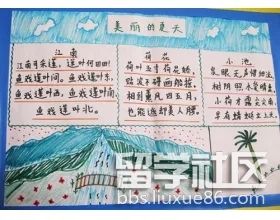 美丽的夏天
江南
江南可采莲，莲叶何田田
鱼戏莲叶间。鱼戏莲叶东，
鱼戏莲叶西，鱼戏莲叶南，
鱼戏莲叶北。
荷花
荷叶五寸荷花娇，
贴波不碍画船摇
相到熏风四五月，
也能遮却美人腰
小池
泉眼无声惜细流
树阴照水爱晴柔
小荷才露尖尖角
早有蜻蜓立上头
留学社区
bbs.liuxue86.com